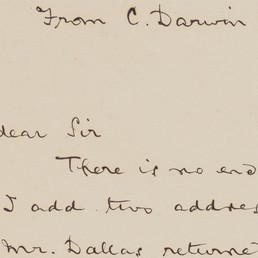 From C. Darwin
dear Sir
There is no end
I add two addres
Mr. Dallas returne